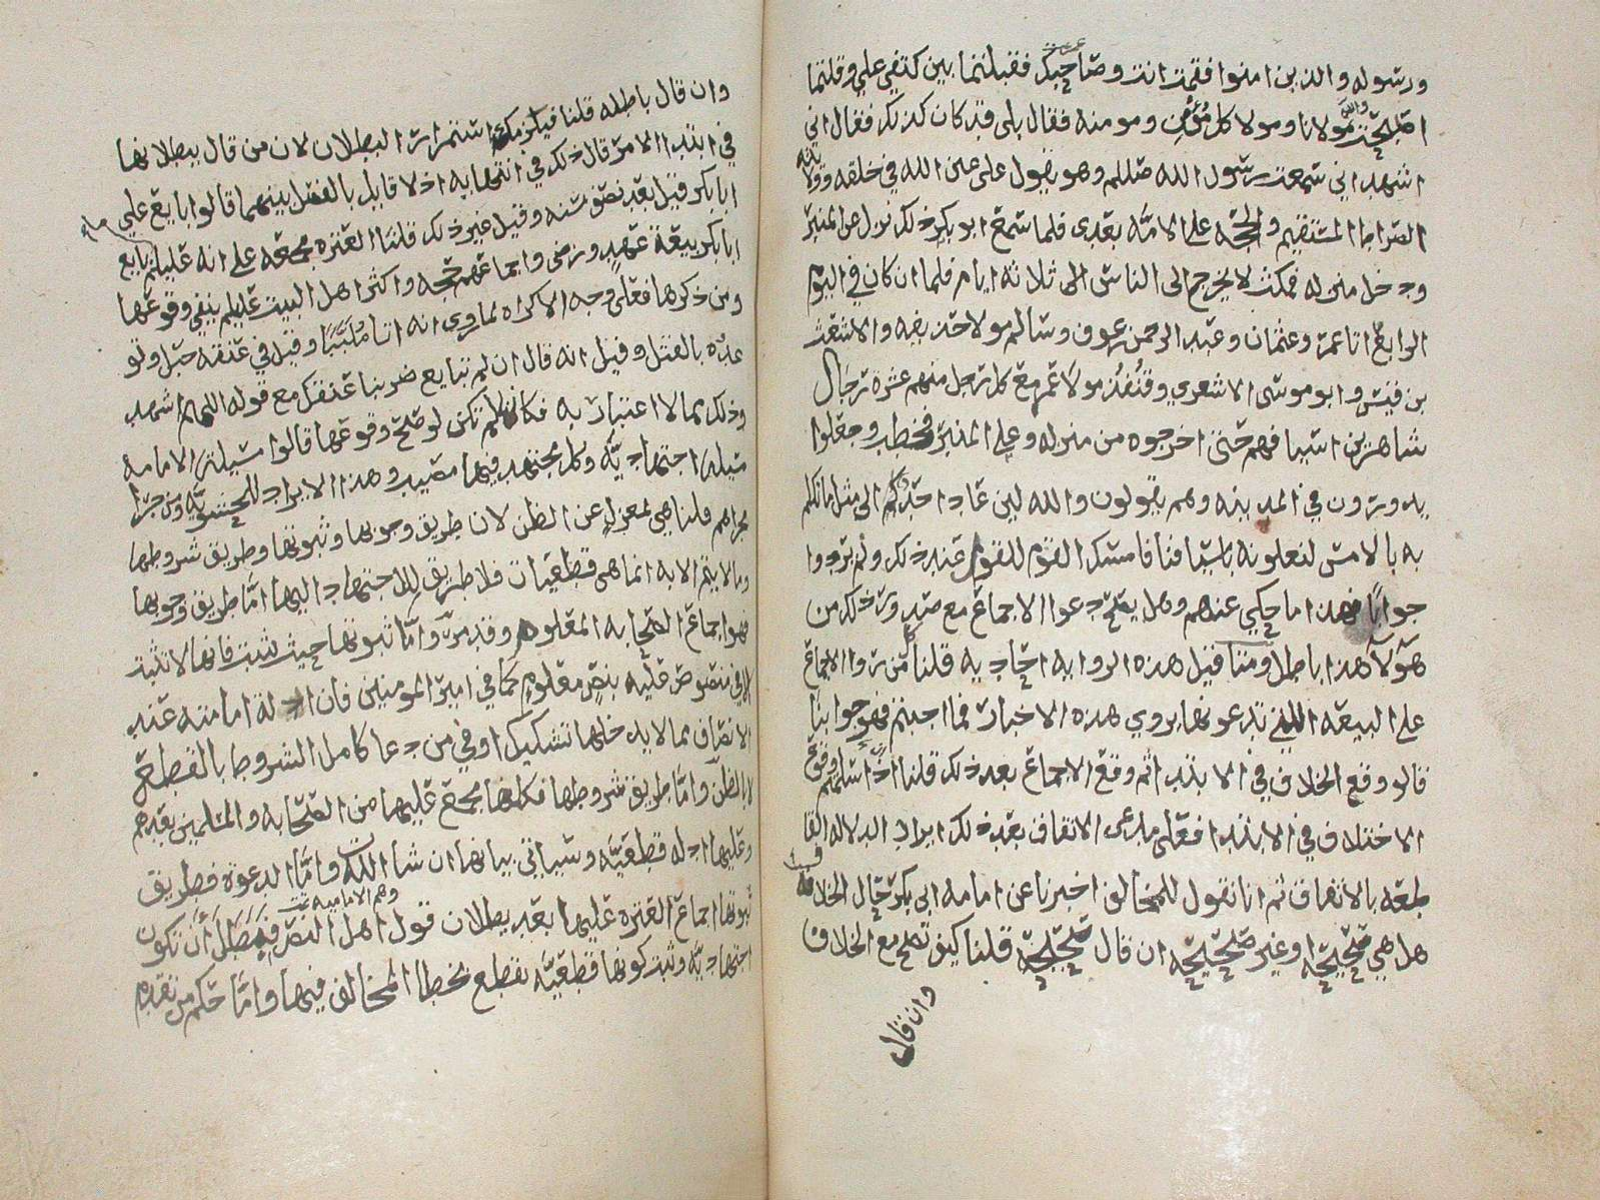 ورسوله والذين امنوا فقمت انت وصاحبك فقبلتما بين كتفي علي وقلتما
اصبحت والله مولانا ومولا كل مؤمن ومومنه فقال بلى قد كان كذلك فقال اني
اشهد اني سمعت رسول الله صللم وهو يقول علي عين الله في خلقه
الصراط المستقيم والحجه على الامه بعدي فلما سمع ابو بكر ذلك نزل عن المنبر
ودخل منزله فمكث لا يخرج الى الناس الى ثلاثه ايام فلما ان كان في اليوم
الرابع اتا عمر وعثمان وعبد الرحمن بن عوف وسالم مولا حذيفه والاشعث
بن قيس وابو موسى الاشعري وقنفذ مولا عمر مع كل رجل منهم عشرة رجال
شاهرين اسيافهم حتى اخرجوه من منزله وعلى المنبر فخطب وجعلوا
يدورون في المدينه وهم يقولون والله لين عاد احدكم الى مثل ما تكلم
به بالامس لنعلونه باسيافنا فامسك القوم عند ذلك ولم يردوا
جوابا فهذا ما حكي عندهم وهل يصح دعوا الاجماع مع صدور ذلك من
هؤلآ هذا باطل ومتا قيل هذه الروايه احاديه قلنا من روا الاجماع
على البيعه التي تدعونها يروي هذه الاخبار فما اجبتم فهو جوابنا
قالو وقع الخلاف في الابتدا ثم وقع الاجماع بعد ذلك قلنا اذا سلمتم وقوع
الاختلاف في الابتدا فعلى مدعي الاتفاق بعد ذلك ايراد الدلاله القا
طعه بالاتفاق ثم انا نقول للمخالف اخبرنا عن امامه ابي بكر حال الخلاف
هل هي صحيحه او غير صحيحه ان قال صحيحه قلنا كيف تصح مع الخلاف
وان قال
وان قال باطله قلنا فيلزمك استمرار البطلان لان من قال ببطلانها
في ابتدا الامر قال ذلك في انتهايه اذ لا قايل بالفصل بينهما قالوا بايع علي
ابا بكر قيل بعد نصف سنه وقيل غير ذلك قلنا العتره مجمعه على انه عليلم ما بايع
ابا بكر بيعة عهد ورضى واجماعهم حجه واكثر اهل البيت عليلم ينفي وقوعها
ومن ذكرها فعلى وجه الاكراه لما روي انه اتا ملببا وقيل في عنقه حبل وتو
عده بالقتل وقيل انه قال ان لم تبايع ضربنا عنقك مع قوله اللهم اشهد
وذلك مما لا اعتبار به فكانها لم تكن لو صح وقوعها قالوا مسيله الامامه
مسيله اجتهاديه وكل مجتهد فيها مصيب وهذا الايراد للحشويه ومن جرا
مجراهم قلنا هي بمعزل عن الظن لان طريق وجوبها وثبوتها وطريق شروطها
وما لا يتم الا به انما هي قطعيات فلا طريق للاجتهاد اليها اما طريق وجوبها
فهو اجماع الصحابه المعلوم وقد مر واما ثبوتها حيث ثبت فانها لا تثبت
الا في منصوص عليه بنص معلوم كما في امير المومنين فان ادله امامته عند
الانصاف مما لا يدخلها تشكيك او في من دعا كامل الشروط بالقطع
لا بالظن واما طريق شروطها فكلها مجمع عليها من الصحابه والمسلمين بعدهم
وعليها ادله قطعيه وسياتي بيانها ان شا الله واما الدعوة فطريق
ثبوتها اجماع العتره عليها بعد بطلان قول اهل النص وهم الاماميه فبطل ان تكون
اجتهاديه وثبت كونها قطعيه نقطع بخطا المخالف فيها واما حكم من تقدم